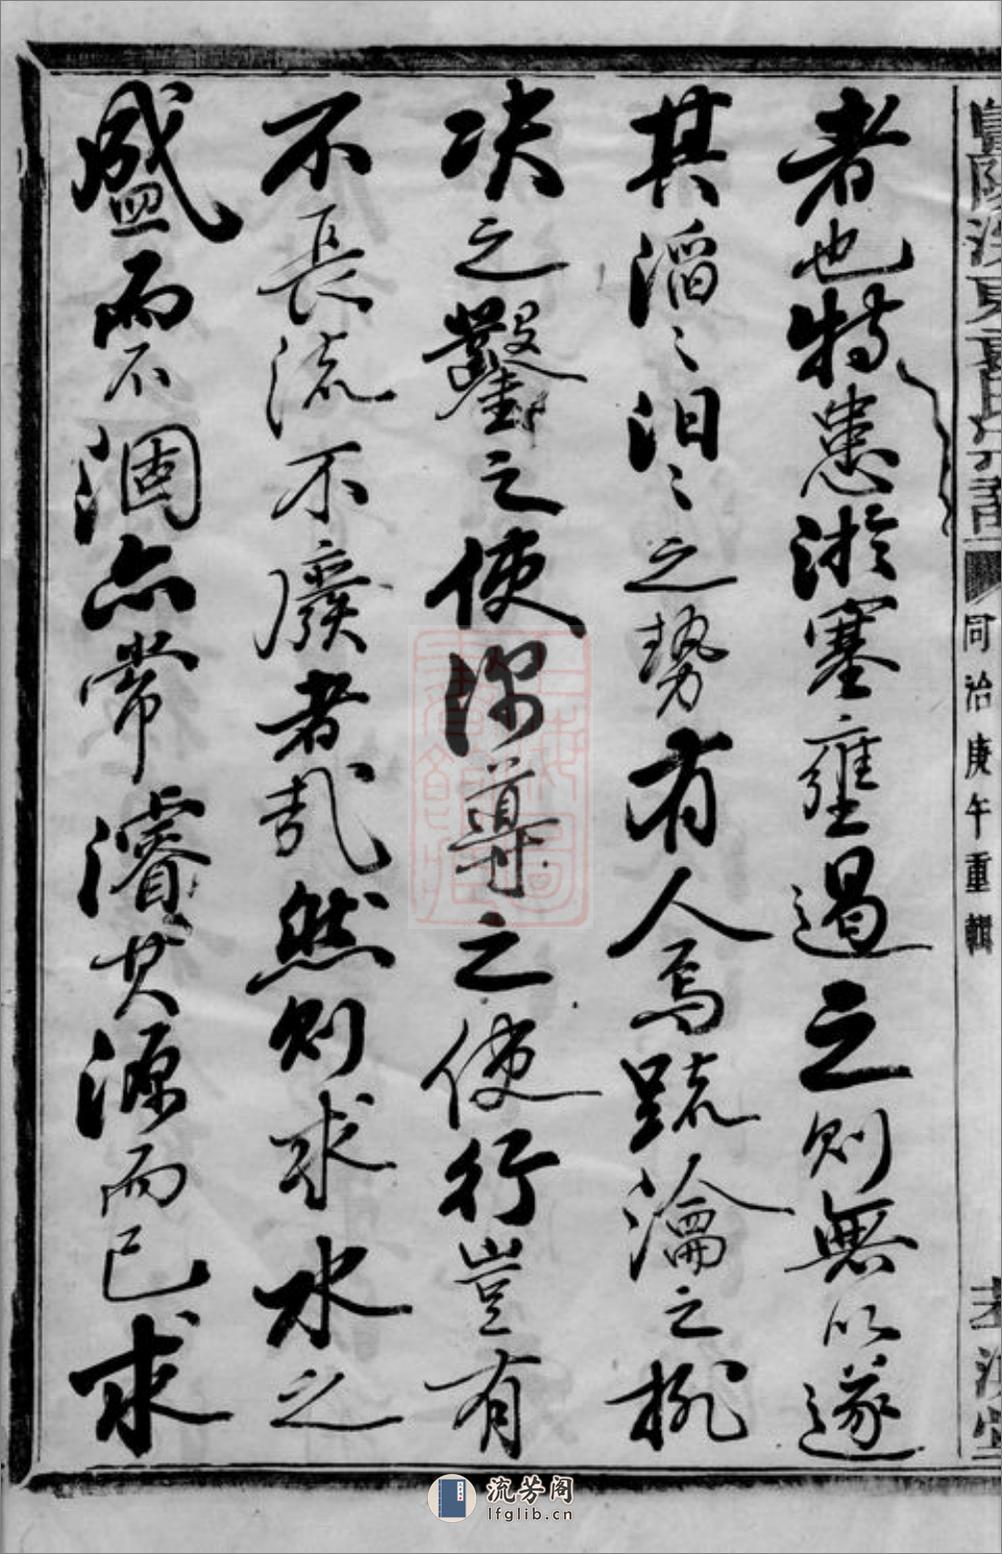 同治庚午重輯
者也特患淤塞壅遏之則無以遂
其滔〻汩〻之勢有人焉疏瀹之排
决之鑿之使深導之使行豈有
不長流不廢者哉然則求水之
盛而不涸亦常濬其源而已求
上海圖書館藏
流芳阁
lfglib.cn